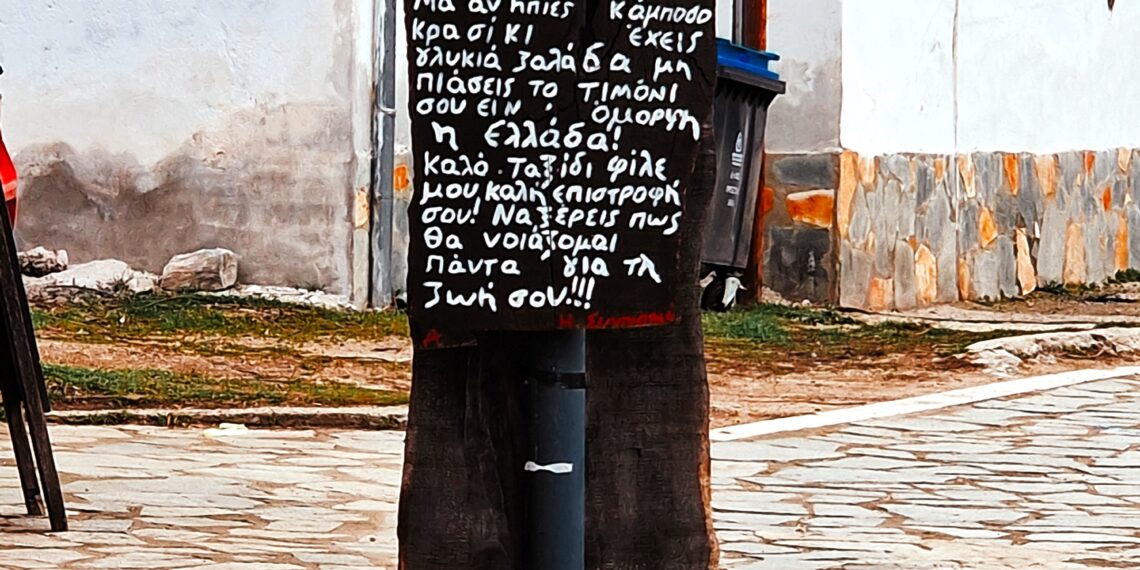 Μα αν ήπιες κάμποσο
κρασίκι έχεις
γλυκιά ζαλάδα μη
πιάσεις το τιμόνι
σου είν' όμορφη
η Ελλάδα!
Καλό ταξίδι φίλε
μου, καλή επιστροφή
σου! Να ξέρεις πως
θα νοιάζομαι
πάντα για τη
ζωή σου!!!